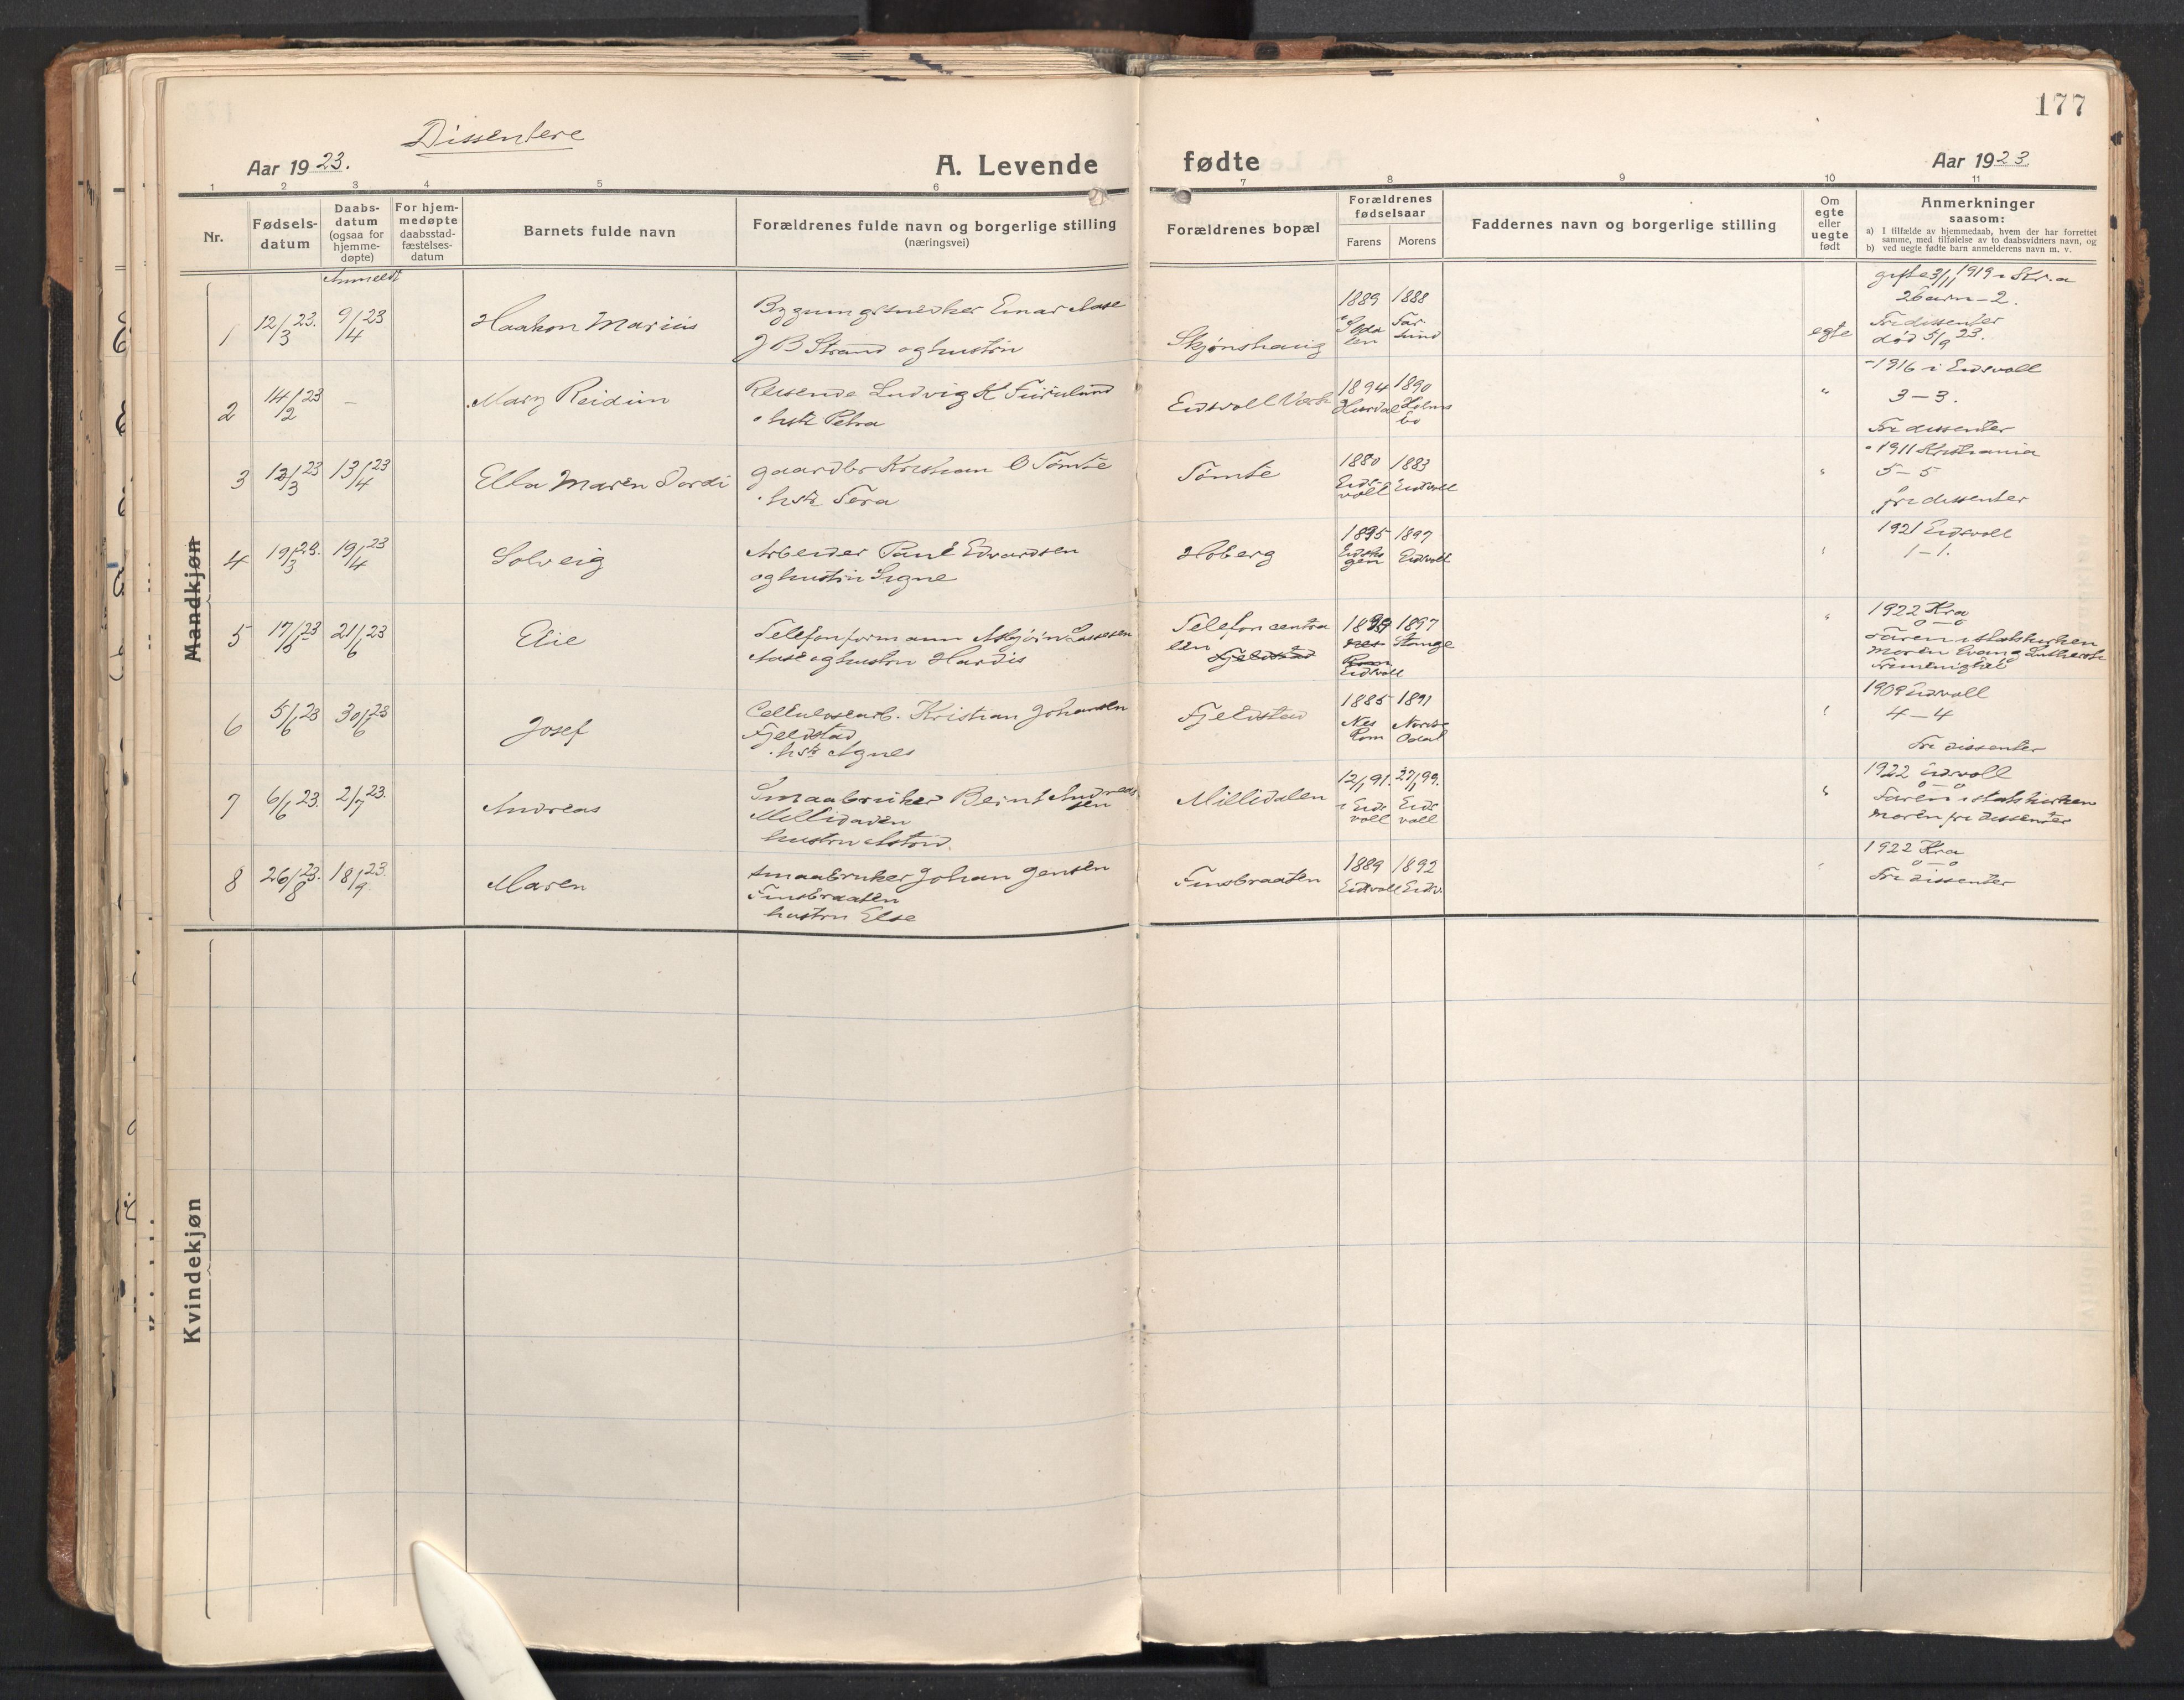 177
Dissentere
Aar 1923.
A. Levende fødte
Aar 1923.
1 2 3 4 5 6 7 8 9 10 11
Nr.
Fødsels-
datum
Daabs-
datum
(ogsaa for
hjemme-
døpte)
For hjem-
medøpte
daabsstad-
fæstelses-
datum
Barnets fulde navn
Forældrenes fulde navn og borgerlige stilling
(næringsvei)
Forældrenes bopæl
Forældrenes
fødselsaar
Farens Morens
Faddernes navn og borgerlige stilling
Om
egte
eller
uegte
født
Anmerkninger
saasom:
a) I tilfælde av hjemmedaab, hvem der har forrettet
samme, med tilføielse av to daabsvidners navn, og
b) ved uegte fødte barn anmelderens navn m. v.
Mandkjøn
Anmeldt
1 12/3 23. 9/4 23 Haakon Marius
Einar Aase
J B Strand og hustru
Skjønshaug
1889 1888
egte
gifte 3/11 1919 i Kr.a
2 barn - 2.
Fri dissenter
død 5/9 23.
2 14/2 23 — Mary Reidun
Reisende Ludvig K Furulund
hstr Petra
Eidsvoll Verk
1894 Hurdal
1890 Holms
bo
"
1916 i Eidsvoll
3 — 3.
Fri dissenter
3 12/3 23 13/4 23 Ella Maren Dordi
gaardbr Kristian O Tømte
hstr Tora
Tømte
1880 Eids-
voll
1883 Eidsvoll
"
1911 Kristiania
5 - 5
fri dissenter
4 19/3 23. 19/4 23 Solveig
Arbeider Paul Edvardsen
og hustru Signe
Hoberg
1895
1897 Eidsvoll
1921 Eidsvoll
1 - 1.
5 21/6 23
Telefonformann Asbjørn
Aase og hustru Hardis
Telefoncentra
len
Fjeldstad
Eidsvoll
1897 Stange
"
1922 Kra
0 — 0
Faren i statskirken
Moren Evang Luthersk
Frimenighet
6 5/6 23 Josef
Cellulosearb. Kristian Johansen
Fjeldstad
hstr Agnes
Fjeldstad
1885 Nes
Rom
1891 Nordre
Odal
1909 Eidsvoll
4 — 4
Fri dissenter
7 6/6 23. 2/7 23. Andreas
Smaabruker Bernt Andreas
sen
hustru Astrid
Millidalen
12/1 91. i Eids
voll
27/1 99. Eids
voll
"
1922 Eidsvoll
0 — 0
Faren i statskirken
Moren fri dissenter
8 26/8 23. 18/9 23. Maren
Smaabruker Johan Jensen
Finsbraaten
hustru Else
Finsbraaten
1889 Eidsvoll
1892 Eidsv.
1922 Kra
0 — 0
Fri dissenter
Kvindekjøn